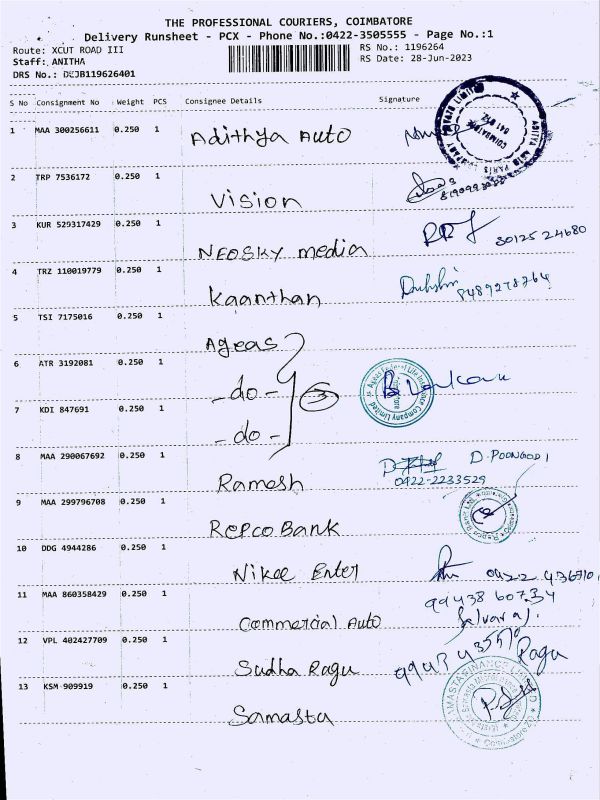 THE PROFESSIONAL COURIERS, COIMBATORE
Delivery Runsheet - PCX - Phone No.:0422-3505555 - Page No.:1
Route: XCUT ROAD III
RS No.: 1196264
Staff: ANITHA
RS Date: 28-Jun-2023
DRS No.: DEJB119626401
S No Consignment No Weight PCS Consignee Details Signature
1 MAA 300256611 0.250 1 Adithya Auto
2 TRP 7536172 0.250 1 Vision
3 KUR 529317429 0.250 1 NEOSKY media 80125 24680
4 TRZ 110019779 0.250 1 Kaanthan 8489278764
5 TSI 7175016 0.250 1 Ageas
6 ATR 3192081 0.250 1 -do- 3
7 KDI 847691 0.250 1 -do-
8 MAA 290067692 0.250 1 Ramesh D. POONGODI
0422-2233529
9 MAA 299796708 0.250 1 Repco Bank
10 DDG 4944286 0.250 1 Nikee Enter 0422 436910
11 MAA 860358429 0.250 1 Commercial Auto 99438 60734
Selvaraj.
12 VPL 402427709 0.250 1 Sudha Ragu Ragu
13 KSM 909919 0.250 1 Samasta